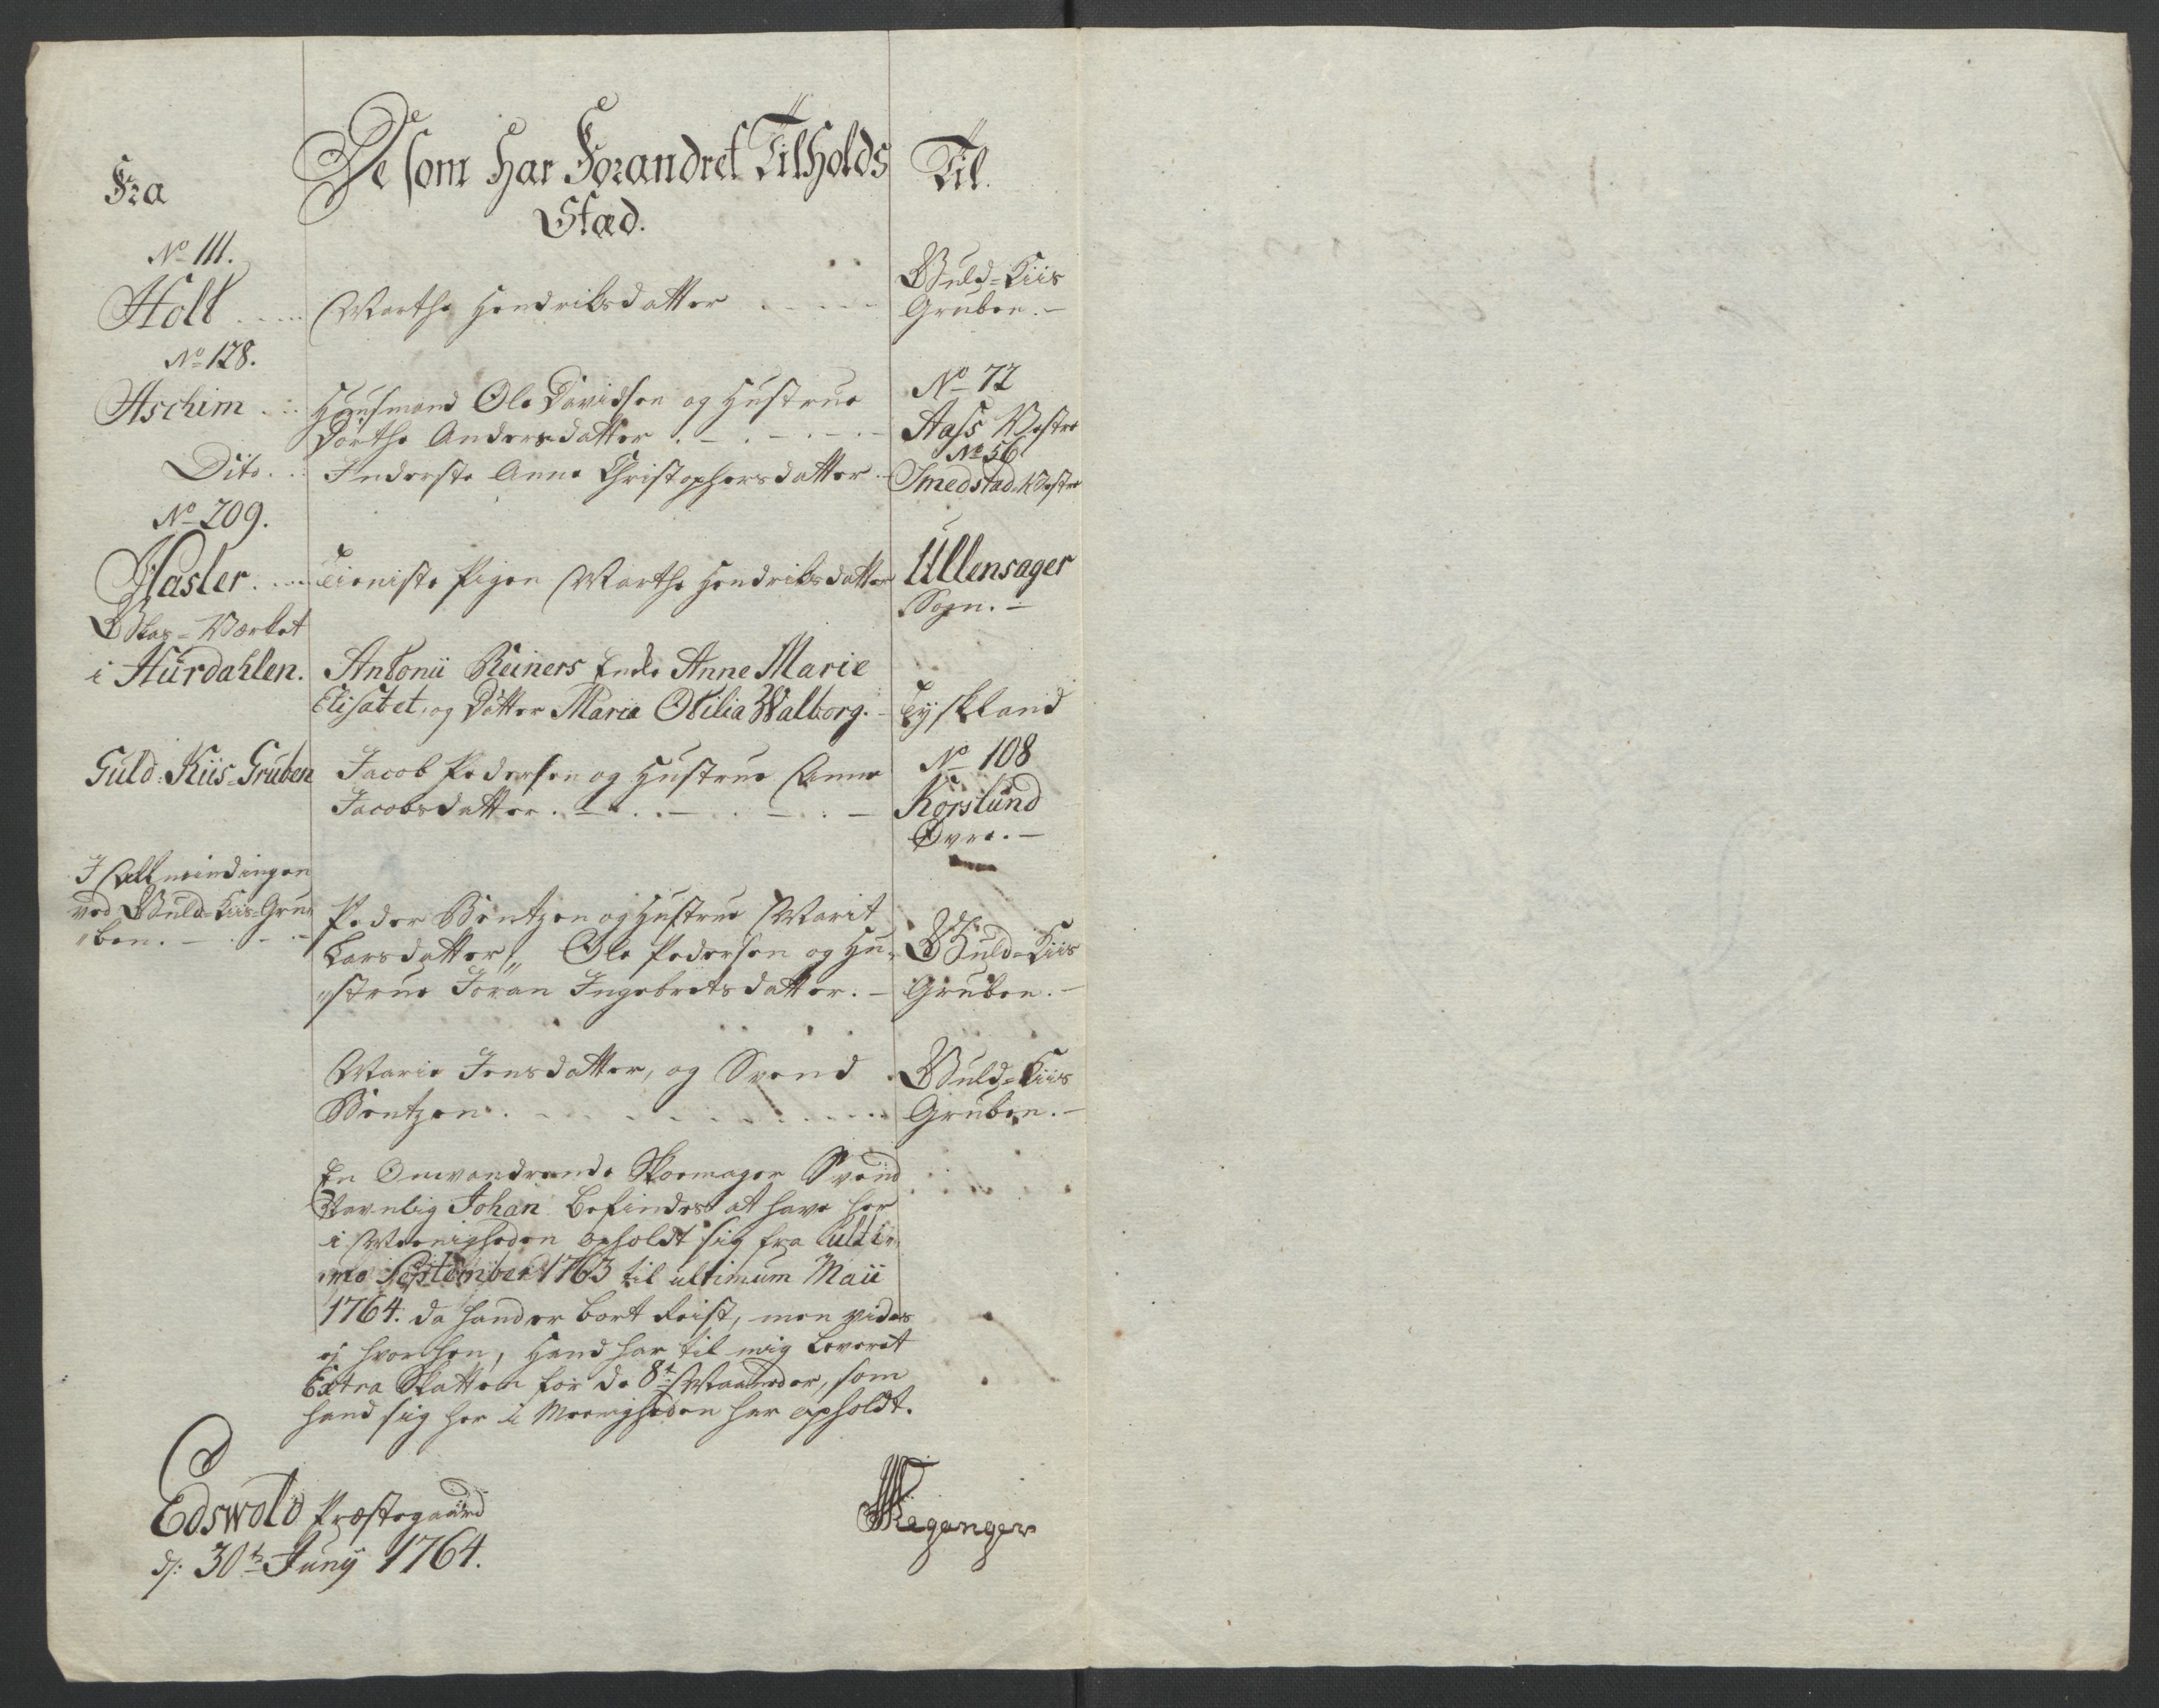 Fra
De som har Forandret Tilholds
Stæd.
Til.
No 111.
Holt
Marthe Hendriksdatter
Guld-Kiis
Gruben.
No 128.
Aschim
Huusmand Ole Davidsen og Hustrue
Dorthe Andersdatter
No 72
Aass Vestre
Dito
Inderste Anne Christophersdatter
No 56
Smedstad Vestre
No 209.
Hasler
Tieniste Pigen Marthe Hendriksdatter
Ullensager
Sogn.
Glas-Værket
i Hurdahlen.
Antonii Reiners Enke Anne Marie
Elisabet, og Datter Maria Otilia Walborg.
Tyskland
Guld-Kiis-Gruben
Jacob Pedersen og Hustrue Anne
Jacobsdatter
No 108
Korslund
Øvre.
I Allmindingen
ved Guld-Kiis-Gru-
ben.
Peder Bentzen og Hustrue Marit
Larsdatter, Ole Pedersen og Hu-
strue Joran Ingebretsdatter.
Guld-Kiis
Gruben.
Marie Jensdatter, og Svend
Bentzen.
Guld-Kiis
Gruben.
En Omvandrende Skoemager Svend
Navnlig Johan befindes at have her
i Meenigheden opholdt sig fra ulti-
mo September 1763 til ultimum Maii
1764. da hand er bort Reist, men vides
ej hvorhen, Hand har til mig leveret
Extra Skatten for de 8te Maaneder, som
hand sig her i Meenigheden har opholdt.
Edswold Præstegaard
d: 30te Junij 1764.